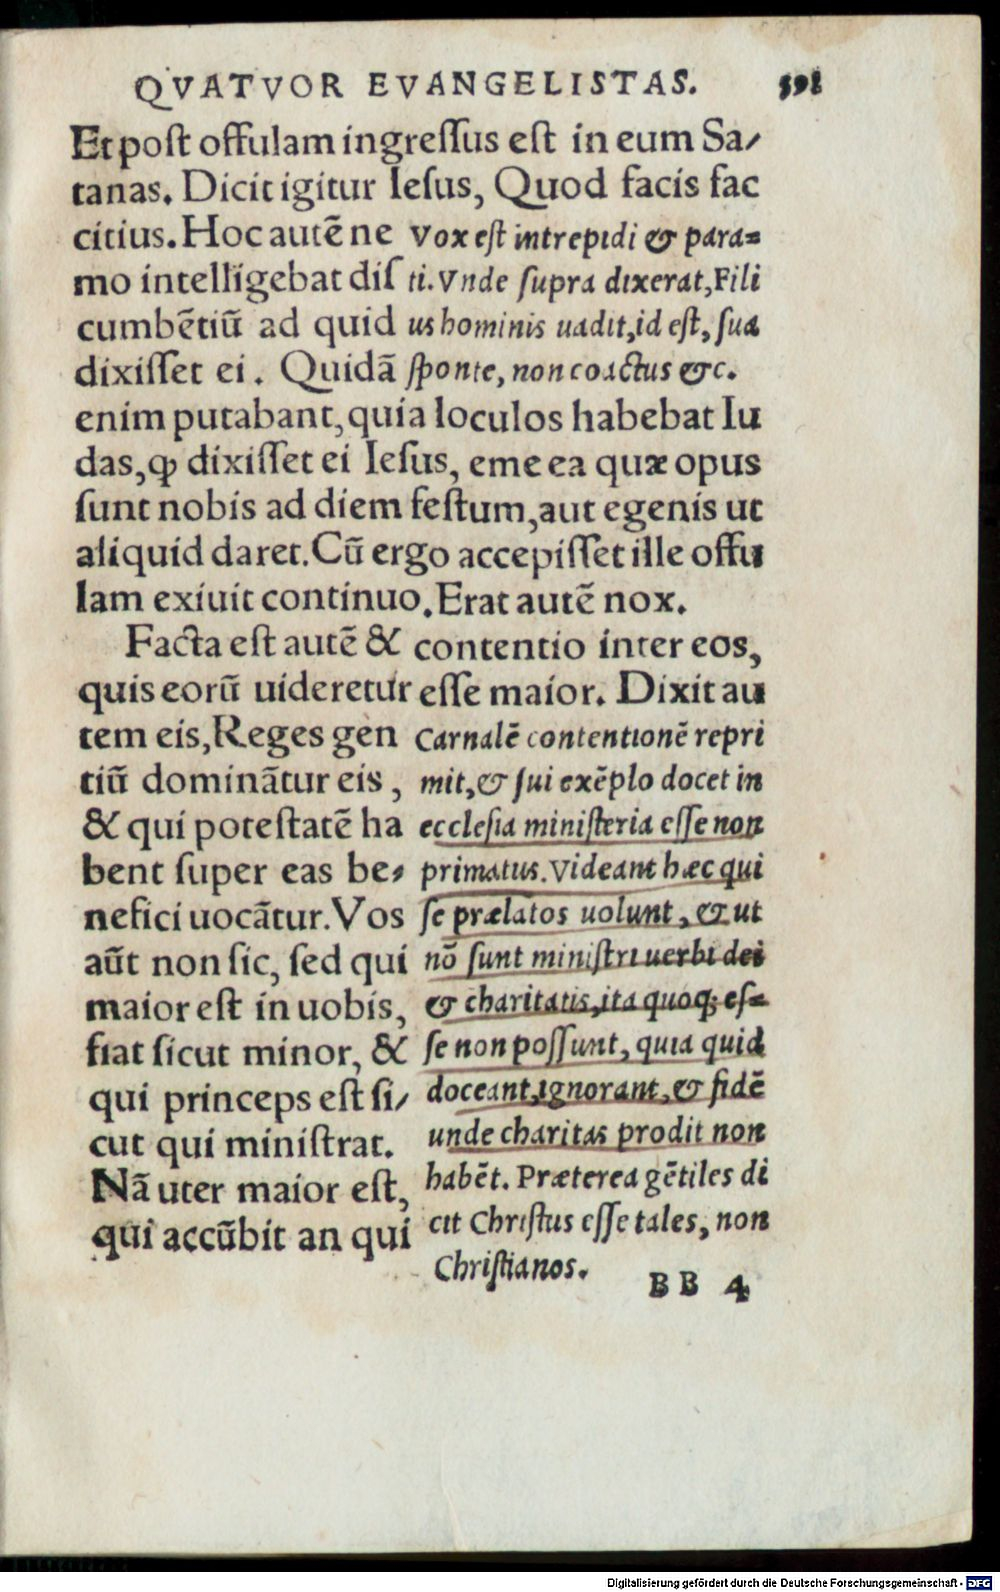 QVATVOR EVANGELISTAS. 391
Et poſt offulam ingreſſus eſt in eum Sa⸗
tanas. Dicit igitur Ieſus, Quod facis fac
citius. Hoc autẽ ne
mo intelligebat diſ
cumbẽtiũ ad quid
dixiſſet ei. Quidã
Vox eſt intrepidi & para⸗
ti. Vnde ſupra dixerat, Fili
us hominis uadit, id eſt, ſua
ſponte, non coactus &c.
enim putabant, quia loculos habebat Iu
das, ꝙ dixiſſet ei Ieſus, eme ea quæ opus
ſunt nobis ad diem feſtum, aut egenis ut
aliquid daret. Cũ ergo accepiſſet ille offu
lam exiuit continuo. Erat autẽ nox.
Facta eſt autẽ & contentio inter eos,
quis eorũ uideretur eſſe maior. Dixit au
tem eis, Reges gen
tiũ dominãtur eis,
& qui poteſtatẽ ha
bent ſuper eas be⸗
nefici uocãtur. Vos
aũt non ſic, ſed qui
maior eſt in uobis,
fiat ſicut minor, &
qui princeps eſt ſi⸗
cut qui miniſtrat.
Nã uter maior eſt,
qui accũbit an qui
Carnalẽ contentionẽ repri
mit, & ſui exẽplo docet in
eccleſia miniſteria eſſe non
primatus. Videant hæc qui
ſe prælatos uolunt, & ut
nõ ſunt miniſtri uerbi dei
& charitatis, ita quoqꝫ eſ⸗
ſe non poſſunt, quia quid
doceant, ignorant, & fidẽ
unde charitas prodit non
habẽt. Præterea gẽtiles di
cit Chriſtus eſſe tales, non
Chriſtianos.
BB 4
Digitalisierung gefördert durch die Deutsche Forschungsgemeinschaft - DFG